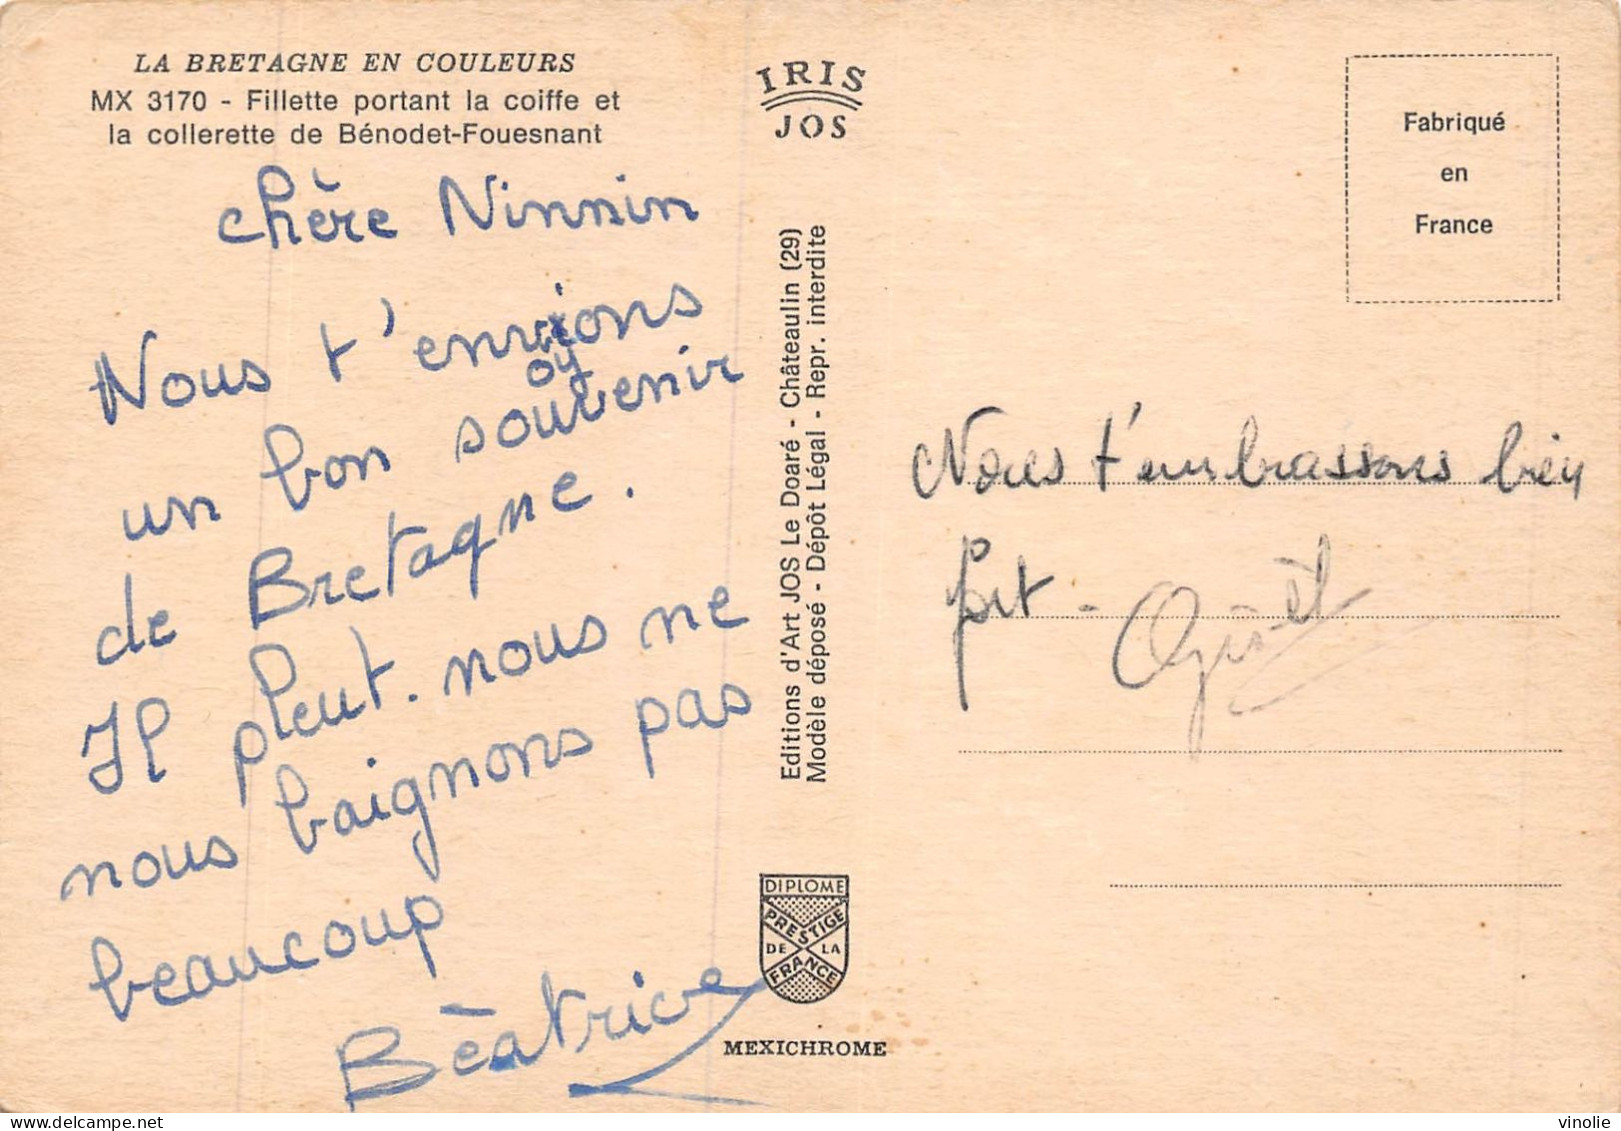 LA BRETAGNE EN COULEURS
MX 3170 - Fillette portant la coiffe et
la collerette de Bénodet-Fouesnant
chère Ninnin
Nous t'envoyons
un bon souvenir
de Bretagne.
Il pleut. nous ne
nous baignons pas
beaucoup
Béatrice
IRIS
JOS
Editions d'Art JOS Le Doaré - Châteaulin (29)
Modèle déposé - Dépôt Légal - Repr. interdite
DIPLOME
PRESTIGE
DE LA
FRANCE
MEXICHROME
Fabriqué
en
France
Nous t'embrassons bien
fort -
vinolie